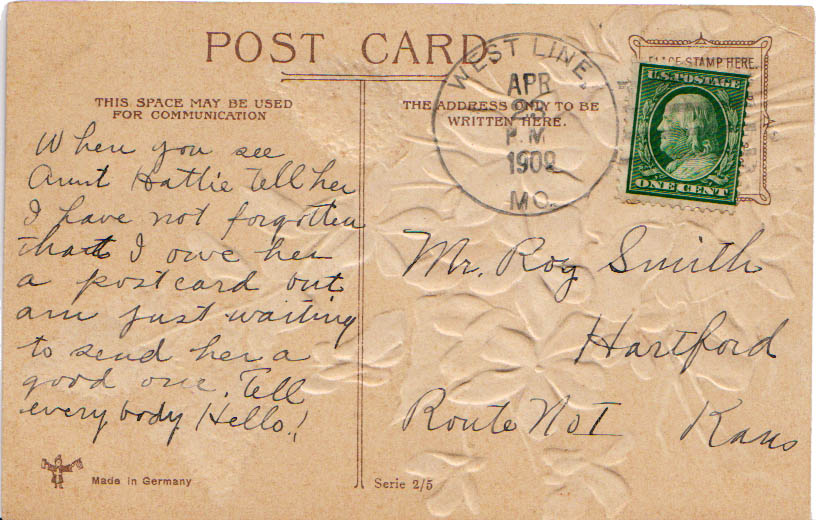 POST CARD
THIS SPACE MAY BE USED
FOR COMMUNICATION
THE ADDRESS ONLY TO BE
WRITTEN HERE.
WEST LINE,
APR
P.M
1909
MO.
PLACE STAMP HERE.
U.S. POSTAGE
ONE CENT
When you see
Aunt Hattie tell her
I have not forgotten
that I owe her
a postcard but
am just waiting
to send her a
good one. Tell
every body Hello!
Mr. Roy Smith
Hartford
Route No I Kans
Made in Germany
Serie 2/5